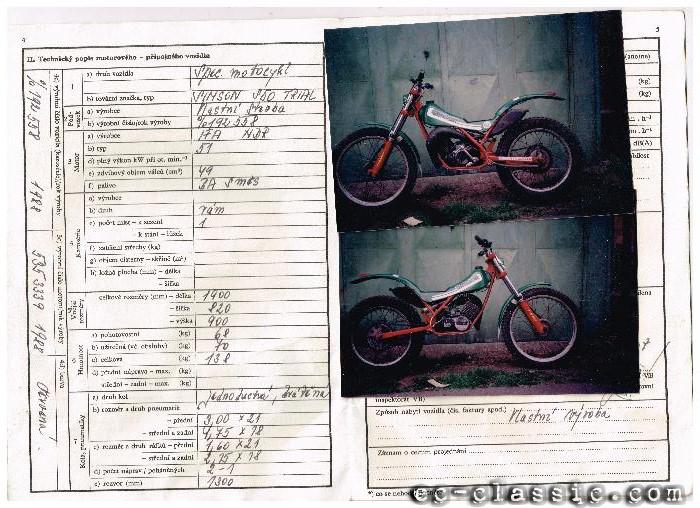 4
II. Technický popis motorového – přípojného vozidla
a) druh vozidla Spec. motocykl
b) tovární značka, typ SIMSON S50 TRIAL
a) výrobce Vlastní stavba
b) výrobní číslo/rok výroby
a) výrobce IFA NDR
b) typ 51
d) plný výkon kW při ot. min.⁻¹
e) zdvihový objem válců (cm³) 49
f) palivo BA směs
a) výrobce
b) druh rám
c) počet míst – k sezení 1
– k stání – lůžek
f) zatížení střechy (kg)
g) objem cisterny – skříně (m³)
h) ložná plocha (mm) – délka
– šířka
celkové rozměry (mm) – délka 1900
– šířka 820
– výška 900
a) pohotovostní (kg) 68
b) užitečná (vč. obsluhy) (kg) 70
c) celková (kg) 138
d) přední náprava – max. (kg)
střední – zadní – max. (kg)
a) druh kol jednoduchá, drátěná
b) rozměr a druh pneumatik
– přední 3,00 × 21
– střední a zadní 4,75 × 18
c) rozměr a druh ráfků – přední 1,60 × 21
– střední a zadní 2,75 × 18
d) počet náprav/poháněných 2-1
e) rozvor (mm) 1300
Motor
Karosérie
Vnější rozměry
Hmotnost
Kola, pneumatiky
1988
5353339 1988
5
(kg)
(kg)
m . h⁻¹
m . h⁻¹
dB(A)
VB
inspektorát VB)
Způsob nabytí vozidla (čís. faktury apod.) Vlastní výroba
Záznam o celním projednání
*) co se nehodí
cg-classic.com